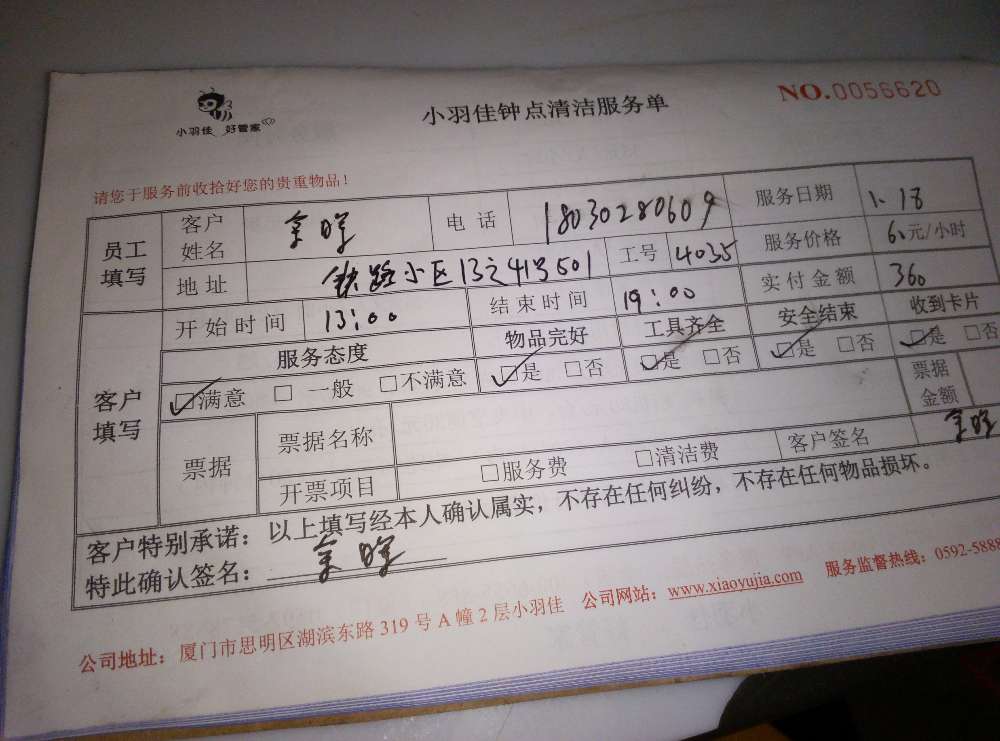 小羽佳 好管家
小羽佳钟点清洁服务单
NO.0056620
请您于服务前收拾好您的贵重物品！
员工填写
客户姓名
电话 18030280609
服务日期 1、18
地址 铁路小区13之4号501
工号 4035
服务价格 60元/小时
开始时间 13:00
结束时间 19:00
实付金额 360
客户填写
服务态度 物品完好 工具齐全 安全结束 收到卡片
☑满意 □一般 □不满意 ☑是 □否 ☑是 □否 ☑是 □否 ☑是 □否
票据
票据名称
票据金额
开票项目 □服务费 □清洁费
客户签名
客户特别承诺：以上填写经本人确认属实，不存在任何纠纷，不存在任何物品损坏。
特此确认签名：
公司地址：厦门市思明区湖滨东路319号A幢2层小羽佳 公司网站：www.xiaoyujia.com 服务监督热线：0592-5888